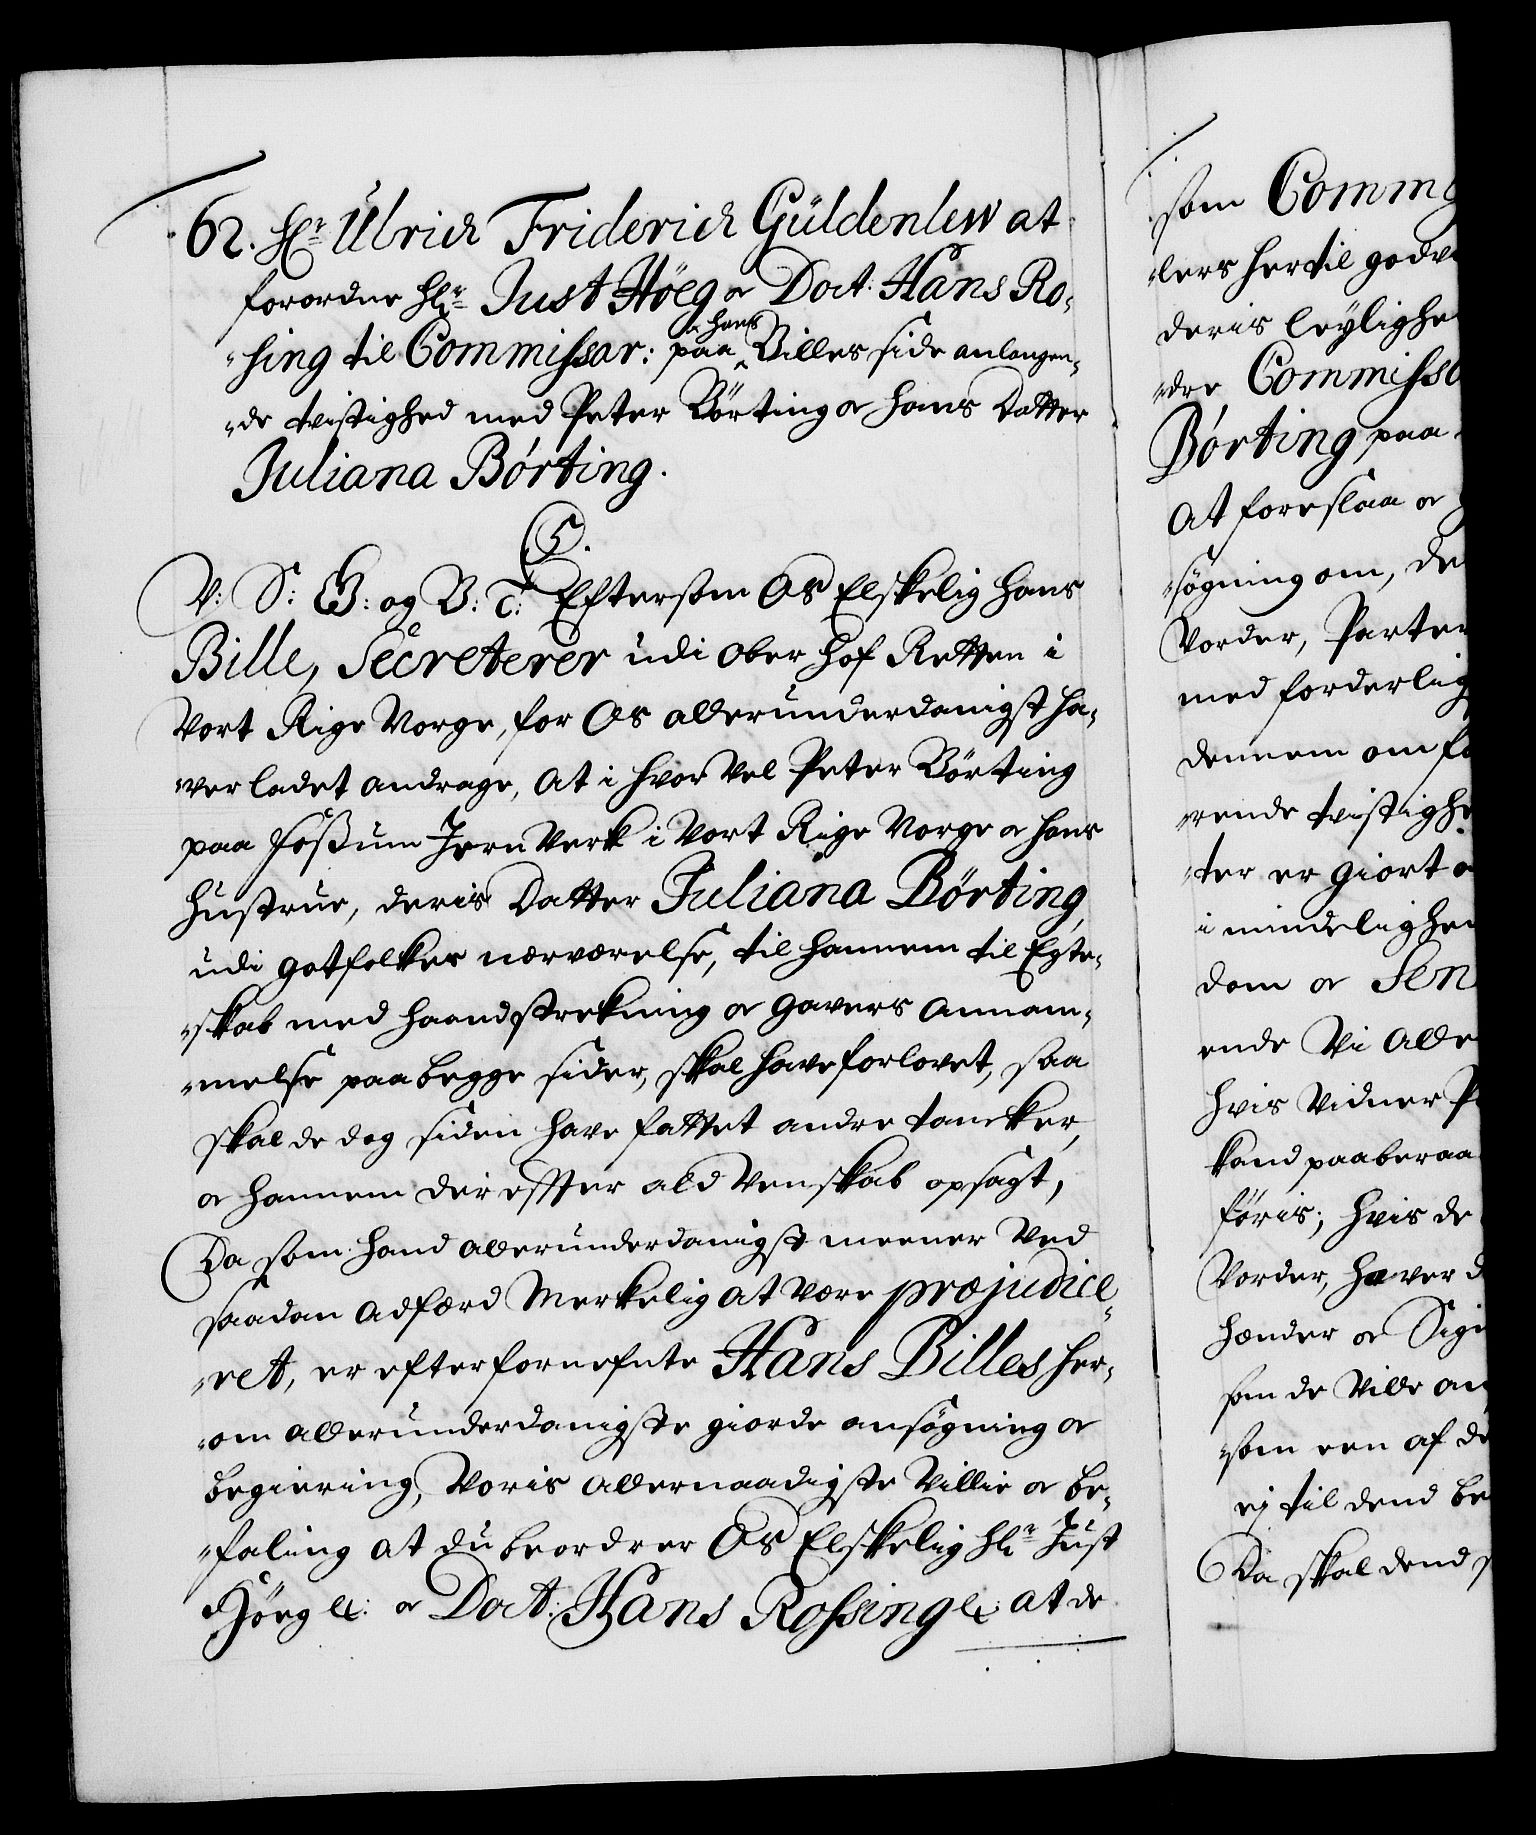 62. Hr: Ulrich Friderich Güldenlew at
forordne Hr: Just Höeg oc Doct: Hans Ro-
sing til Commissar: paa Hans Billes side anlangen-
de tvistighed med Peter Börting oc hans Datter
Juliana Börting.
C5.
V: S: G: og V: T: Eftersom Os Elskelig Hans
Bille, Secreterer udi Ober Hof Retten i
Vort Rige Norge, for Os allerunderdanigst ha-
ver ladet andrage, at i hvor vel Peter Börting
paa Foßum Jern Verk i Vort Rige Norge oc hans
Hustrue, deris Datter Juliana Börting,
udi gotfolkes nærværelse, til hannem til Egte-
skab med haandstrekning oc gavers annam-
melse paa begge sider, skal have forlovet, saa
skal de dog siden have fattet andre tancker,
oc hannem der effter ald Venskab opsagt,
Da som hand allerunderdanigst meener ved
saadan adfærd Merkelig at være præjudice-
ret, er efter fornefnte Hans Billes her-
om allerunderdanigste giorde ansøgning oc
begiering, Voris allernaadigste Villie oc be-
faling at du beordrer Os Elskelig Hr: Just
Höeg etc: oc Doct: Hans Rosing etc: at de
som Comm
lers hertil godv
deris leylighe
dre Commisso
Börting paa
at foreslaa oc
søgning om, de
Vorder, Parter
med forderlig
dennem om fo
rende tvistighe
ter er giort o
i mindelighe
dom oc Sen
ende Vi alle
hvis vidner P
kand paaberaa
føris; hvis de
Vorder, haver d
hænder oc Sig
som de Ville an
som een af de
ej til dend be
Da skal dend s